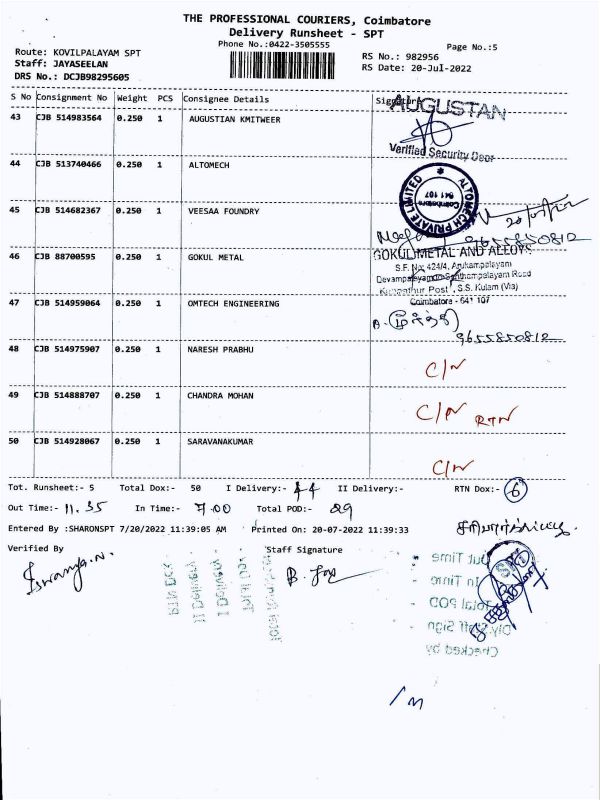 THE PROFESSIONAL COURIERS, Coimbatore
Delivery Runsheet - SPT
Phone No.:0422-3505555
Page No.:5
Route: KOVILPALAYAM SPT
RS No.: 982956
Staff: JAYASEELAN
RS Date: 20-Jul-2022
DRS No.: DCJB98295605
S No Consignment No Weight PCS Consignee Details Signature
43 CJB 514983564 0.250 1 AUGUSTIAN KMITWEER
AUGUSTAN
Verified Security Door
44 CJB 513740466 0.250 1 ALTOMECH
ALTOMECH PRIVATE LIMITED
Coimbatore
641 107
45 CJB 514682367 0.250 1 VEESAA FOUNDRY
20/07/22
9655850812
46 CJB 88700595 0.250 1 GOKUL METAL
GOKUL METAL AND ALLOYS
S.F. No: 424/4, Arukampalayam
Post, S.S. Kulam (Via)
Coimbatore - 641 107
47 CJB 514959064 0.250 1 OMTECH ENGINEERING
9655850812
48 CJB 514975907 0.250 1 NARESH PRABHU
C/N
49 CJB 514888707 0.250 1 CHANDRA MOHAN
C/N RTN
50 CJB 514928067 0.250 1 SARAVANAKUMAR
C/N
Tot. Runsheet:- 5 Total Dox:- 50 I Delivery:- 44 II Delivery:- RTN Dox:- 6
Out Time:- 11.35 In Time:- 7.00 Total POD:- 29
Entered By :SHARONSPT 7/20/2022 11:39:05 AM Printed On: 20-07-2022 11:39:33
Verified By Staff Signature
RTN Dox
II Delivery
I Delivery
Total Dox
Total Runsheet
Out Time
In Time
Total POD
Dly. Staff Sign
Checked by